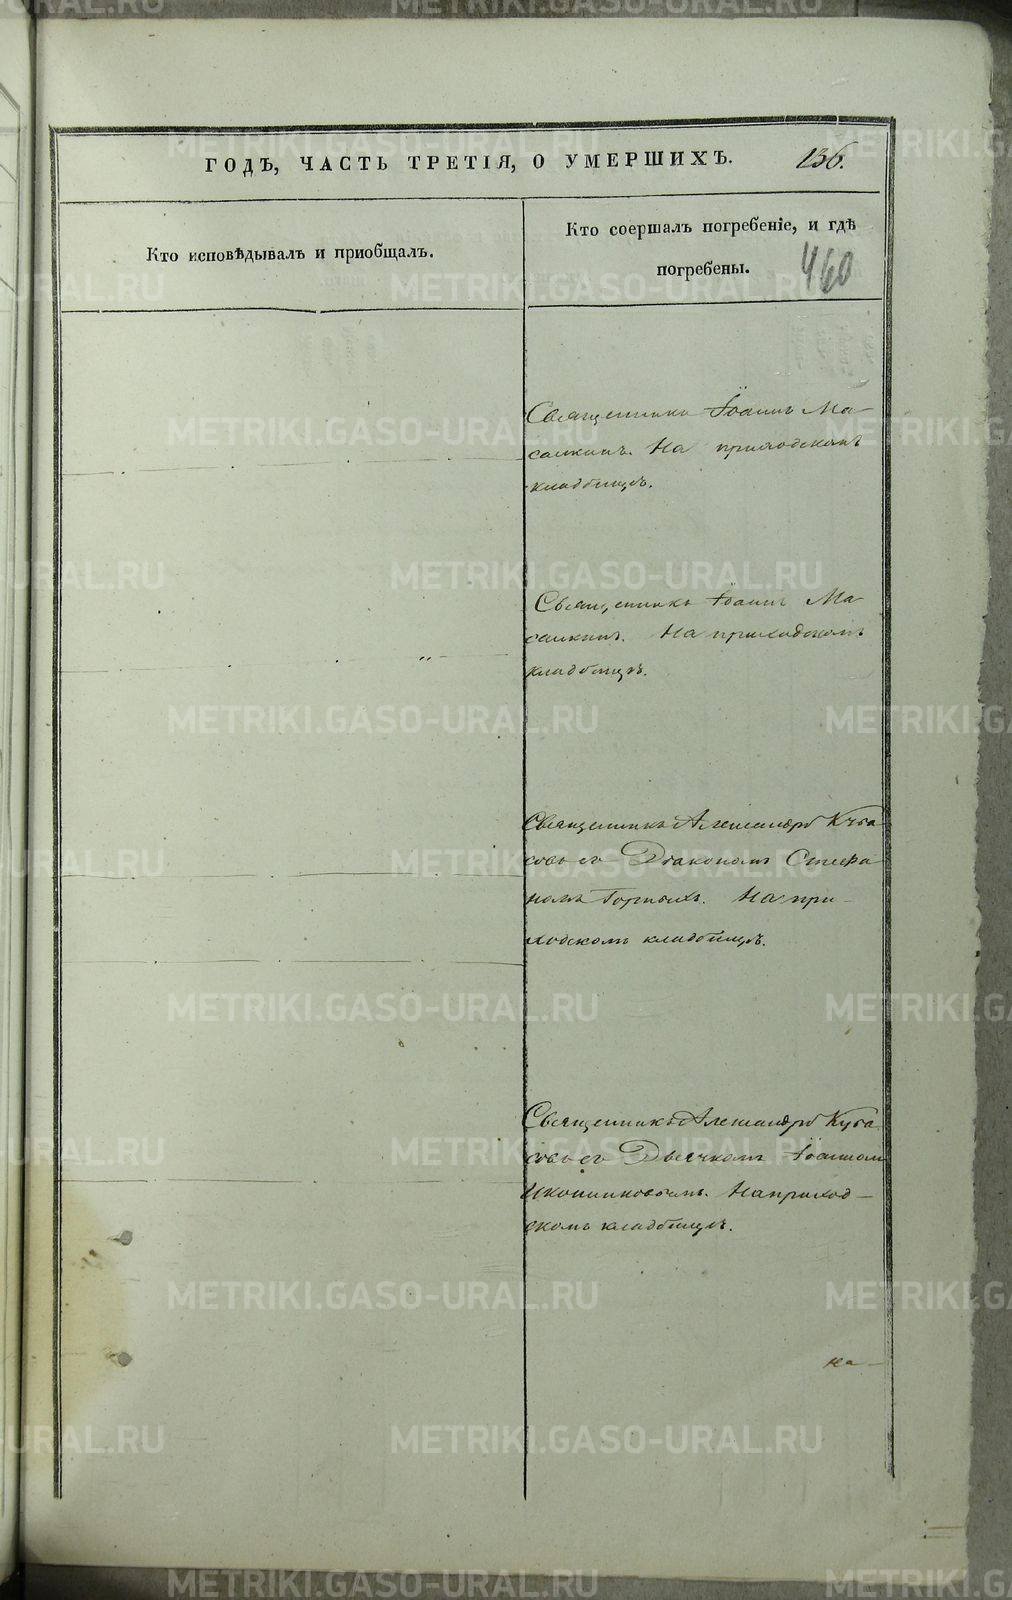 ГОДЪ, ЧАСТЬ ТРЕТІЯ, О УМЕРШИХЪ. 136.
Кто исповѣдывалъ и пріобщалъ.
Кто соершалъ погребеніе, и гдѣ
погребены. 460
Священникъ Іоаннъ Ма-
салкинъ. На приходскомъ
кладбищѣ.
Священникъ Іоаннъ Ма-
салкинъ. На приходскомъ
кладбищѣ.
Священникъ Александръ Куба
совъ съ Діакономъ Стефа
номъ Горныхъ. На при-
ходскомъ кладбищѣ.
Священникъ Александръ Куба
совъ съ Дьячкомъ Іоанном
Иконниковымъ. На приход-
скомъ кладбищѣ.
на-
METRIKI.GASO-URAL.RU